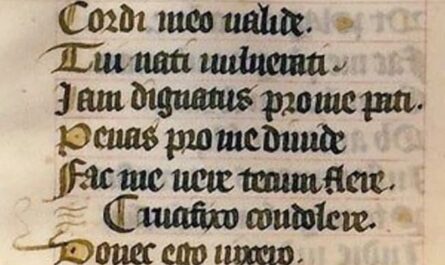 Cordi meo ualide.
Tui nati uulnerati.
Jam dignatus pro me pati.
Penas pro me diuide
Fac me uere tecum flere.
Crucifixo condolere.
Donec ego uixero.